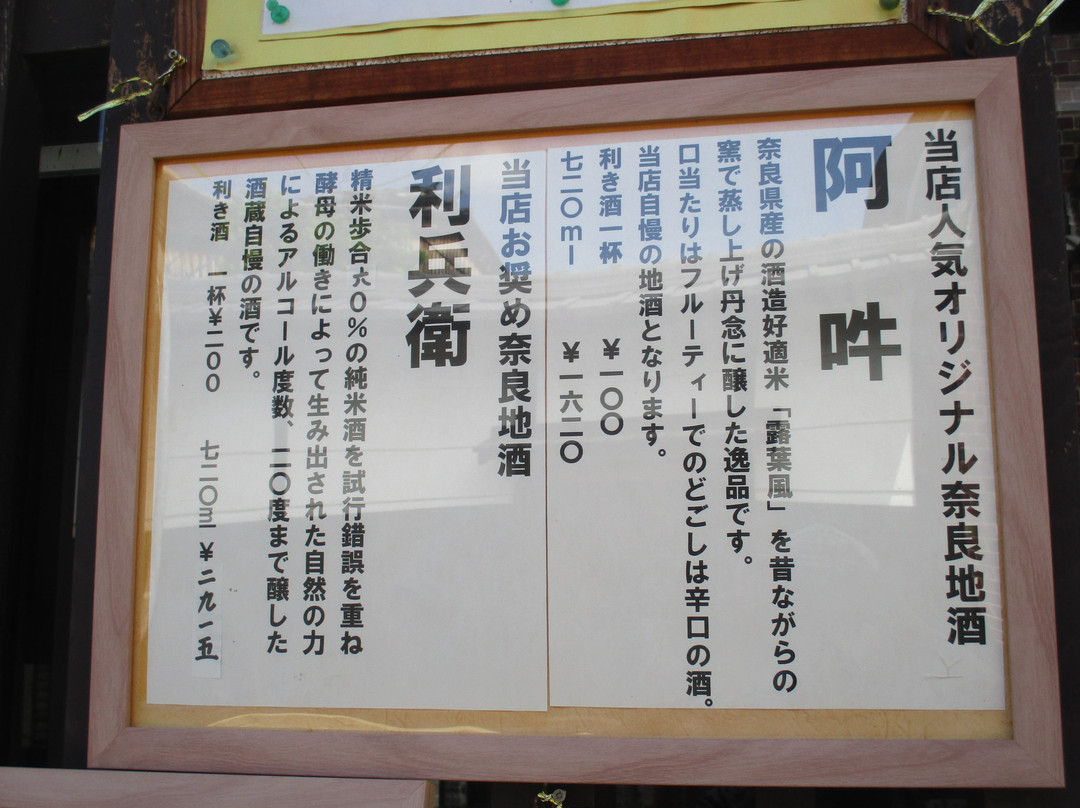 当店人気オリジナル奈良地酒
阿吽
奈良県産の酒造好適米「露葉風」を昔ながらの
窯で蒸し上げ丹念に醸した逸品です。
口当たりはフルーティーでのどごしは辛口の酒。
当店自慢の地酒となります。
利き酒一杯 ￥一〇〇
七二〇ml ￥一六二〇
当店お奨め奈良地酒
利兵衛
精米歩合六〇%の純米酒を試行錯誤を重ね
酵母の働きによって生み出された自然の力
によるアルコール度数、二〇度まで醸した
酒蔵自慢の酒です。
利き酒 一杯￥二〇〇 七二〇ml ￥二九一五